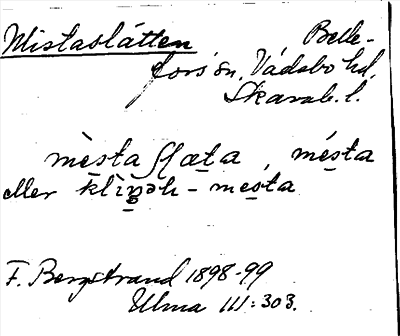 Mistaslätten Belle-
fors sn, Vadsbo hd,
Skarab. l.
mèsta ʃlæta, mésta
eller klìpəh-mesta
F. Bergstrand 1898-99
Ulma 111:303.